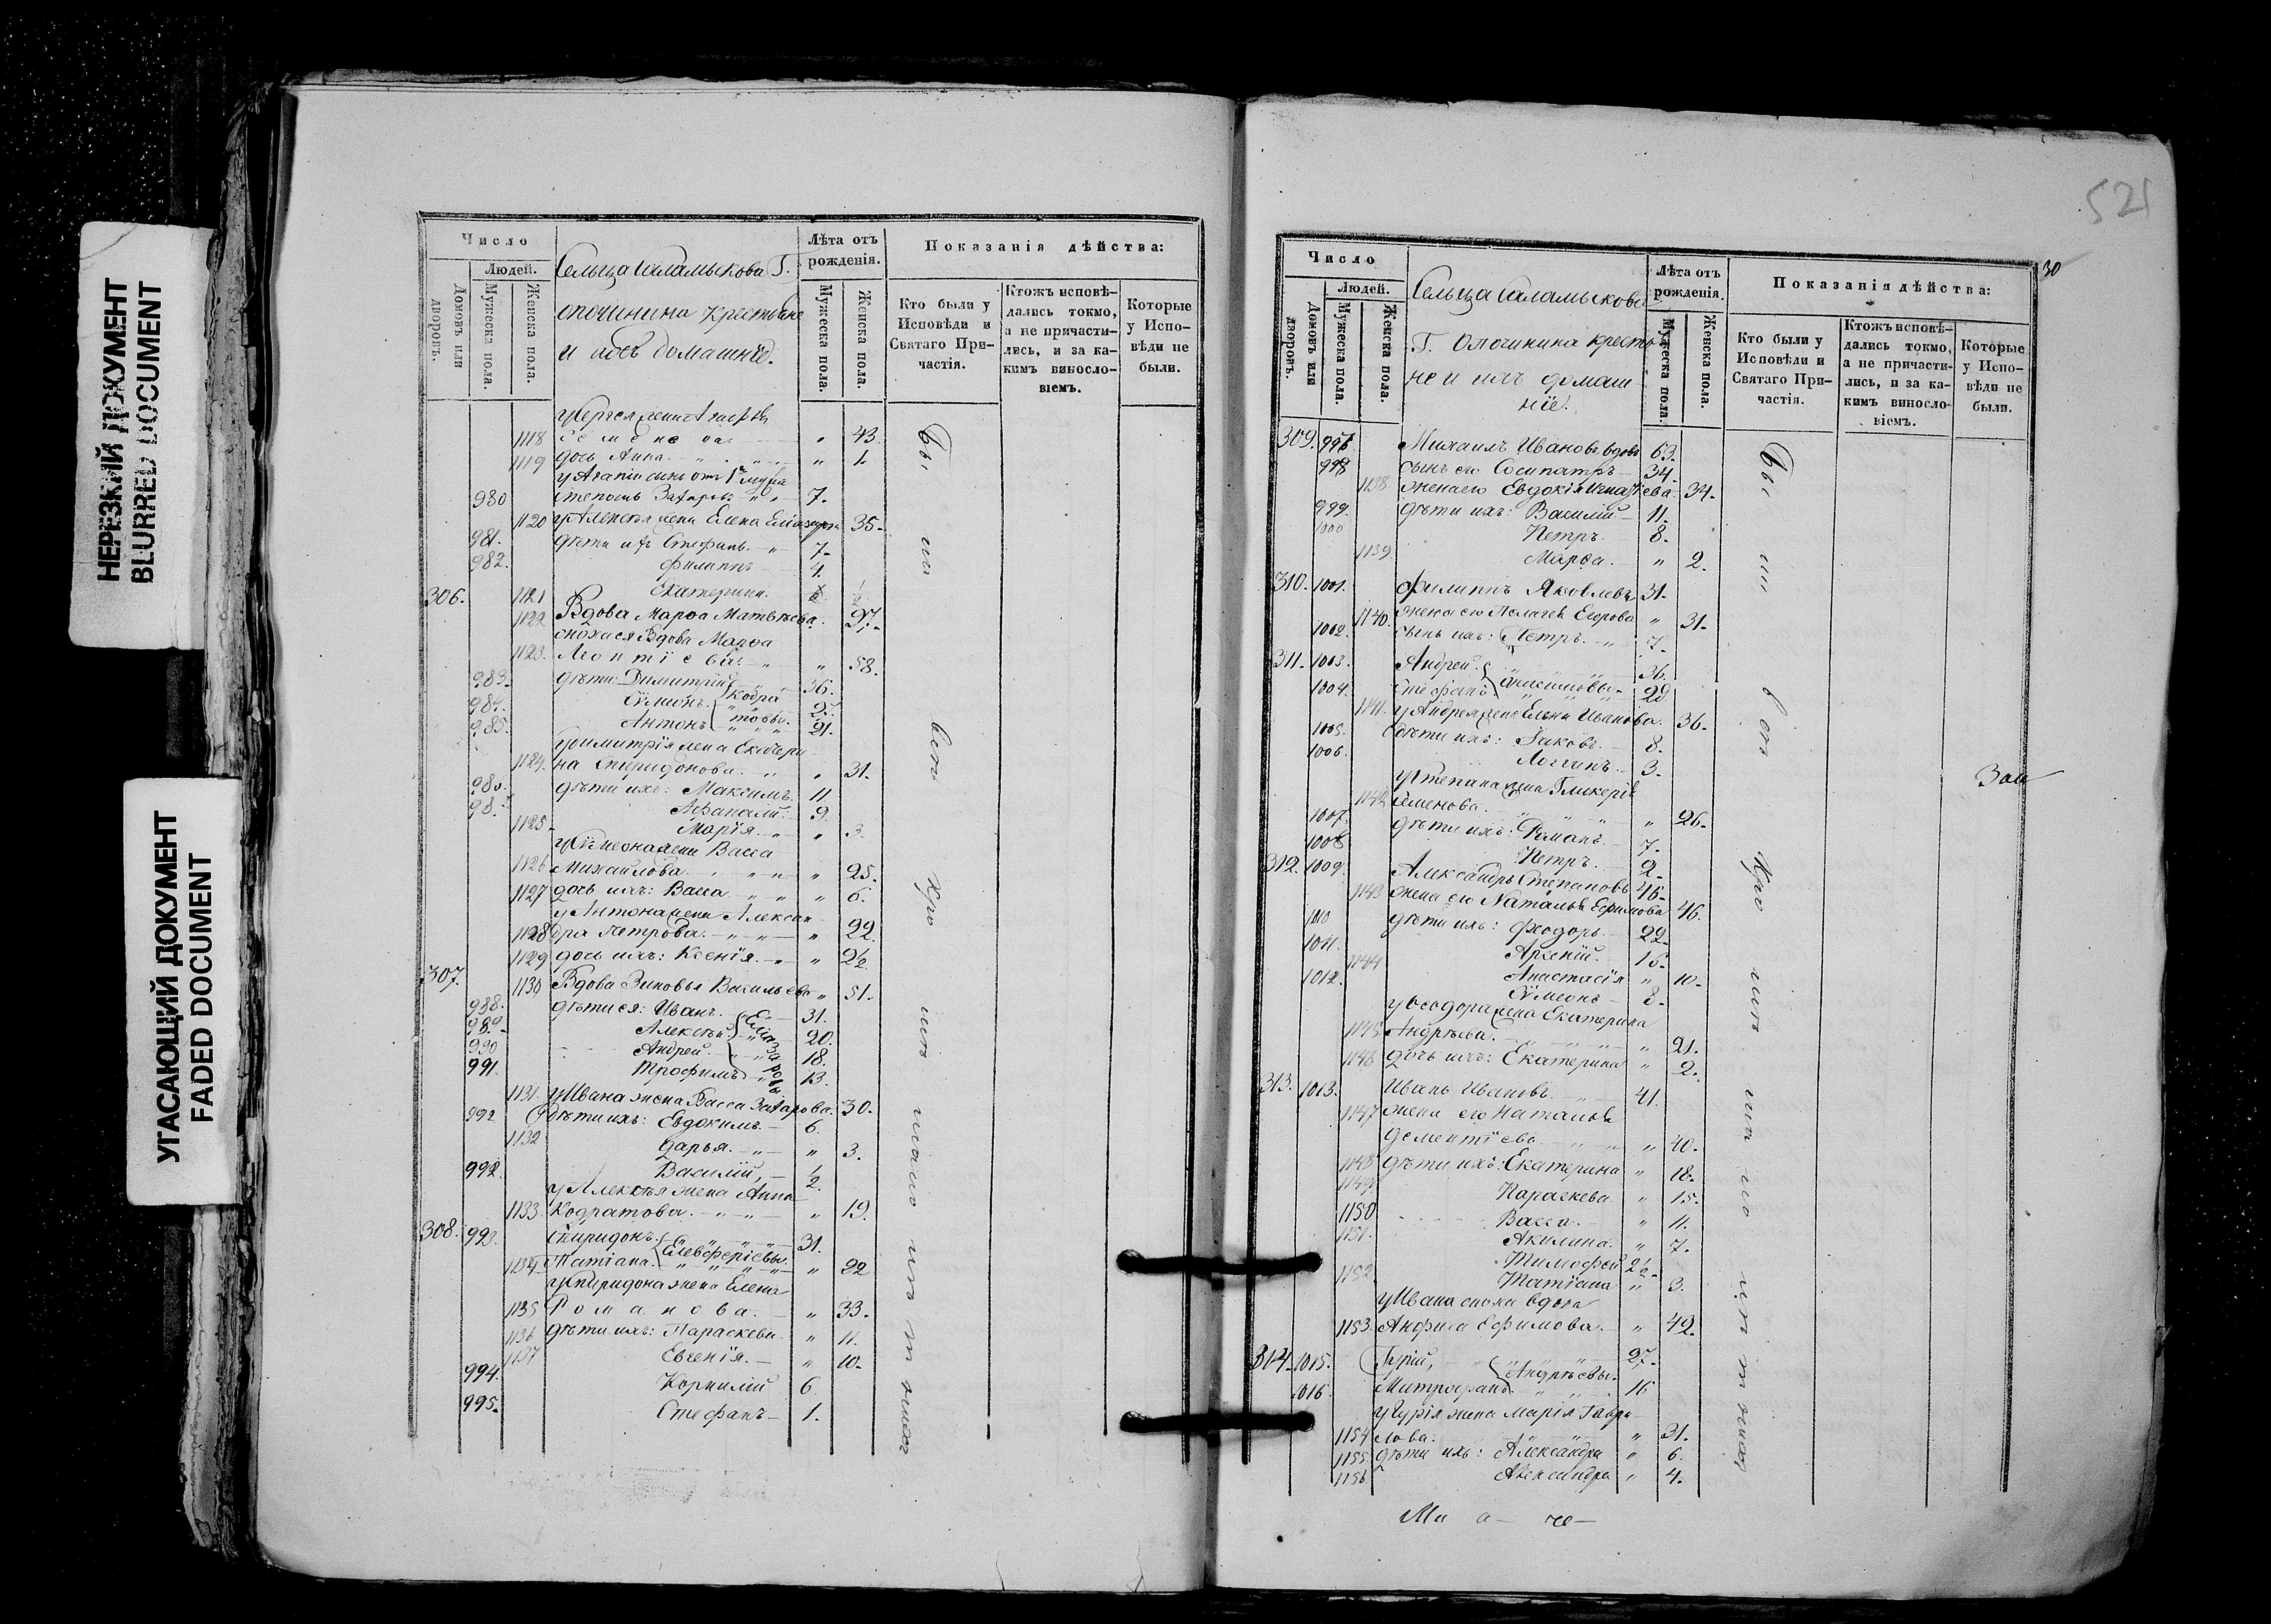 НЕРЕЗКИЙ ДОКУМЕНТ
BLURRED DOCUMENT
УГАСАЮЩИЙ ДОКУМЕНТ
FADED DOCUMENT
Число
Людей.
Домовъ или дворовъ.
Мужеска пола.
Женска пола.
Сельца Саламыкова Г.
опочинина крестьяне
и ихъ домашніе.
Лѣта отъ рожденія.
Мужеска пола.
Женска пола.
Показанія дѣйства:
Кто были у Исповѣди и Святаго Причастія.
Ктожъ исповѣдались токмо, а не причастились, и за какимъ винословіемъ.
Которые у Исповѣди не были.
1118 43.
1119 дочь Анна. " 1.
980 7.
1120 Елена 35.
981. дѣти ихъ Стефанъ. 7.
982. Филиппъ 4.
1121 Екатерина.
306. 1122 Вдова Марѳа Матвѣева. 97.
сноха ея Вдова Марѳа
1123. Леонтіева. " 58.
983. дѣти: Димитрій 36.
984. Сѵмеонъ.
985. Антонъ 21.
у Димитрія жена Екатери
1124. на Спиридонова. " 31.
дѣти ихъ: Максимъ. 11.
Аѳанасій. 9.
1125. Марія. " 3.
у Сѵмеона жена Васса
1126 Михайлова. " 25.
1127 дочь ихъ: Васса " 6.
у Антона жена Алексан
1128 дра Петрова. " 22.
1129 дочь ихъ: Ксенія. " 2½
307. 1130 Вдова Зиновья Васильева " 51.
988. дѣти ея: Иванъ. 31.
989. Алексѣй 20.
990 Андрей 18.
991. Трофимъ 13.
1131. у Ивана жена Васса Захарова. 30.
992 дѣти ихъ: Евдокимъ. 6.
1132 Дарья. " 3.
992. Василій, ½
у Алексѣя жена Анна
1133. Кодратова. " 19.
308. 993. Спиридонъ 31.
1134. Татіана. Елевѳеріевы. " 22
у Спиридона жена Елена
1135 Романова. " 33.
1136 дѣти ихъ: Параскева. " 11.
1137 Евгенія. " 10.
994. Корнилій 6.
995. Стефанъ 1.
521
30
Число
Людей.
Домовъ или дворовъ.
Мужеска пола.
Женска пола.
Сельца Саламыкова
Г. Опочинина кресть
не и ихъ домаш
ніе.
Лѣта отъ рожденія.
Мужеска пола.
Женска пола.
Показанія дѣйства:
Кто были у Исповѣди и Святаго Причастія.
Ктожъ исповѣдались токмо, а не причастились, и за какимъ винословіемъ.
Которые у Исповѣди не были.
309. 997. Михаилъ Ивановъ вдовъ 63.
998 сынъ его Сосипатръ 34.
1138 жена его Евдокія Игнатіева. 34.
999. дѣти ихъ: Василій 11.
1000 Петръ. 8.
1139 Марѳа. " 2.
310. 1001. Филиппъ Яковлевъ 31.
1140. жена его Пелагея Егорова " 31.
1002. сынъ ихъ: Петръ. 7.
311. 1003. Андрей. 36.
1004. Стефанъ. 28
1141. у Андрея жена Елена Иванова. 36.
1005. дѣти ихъ: Іаковъ. 8.
1006. Логгинъ. 3.
у Степана жена Гликерія
1142 Семенова. " 26.
1007. дѣти ихъ: Романъ. 7.
1008 Петръ. 2.
312. 1009. Александръ Степановъ 45.
1143 жена его Наталья Ефимова 46.
1010 дѣти ихъ: Ѳеодоръ 22.
1011. Арсеній. 15.
1144 Анастасія " 10.
1012. Сѵмеонъ 8.
у Ѳеодора жена Екатерина
1145 Андрѣева. " 21.
1146 дочь ихъ: Екатерина " 2.
313. 1013. Иванъ Ивановъ. 41.
1147 жена его Наталья
Дементіева. " 40.
1148 дѣти ихъ: Екатерина " 18.
1149 Параскева " 15.
1150 Васса. " 11.
1151. Акилина. " 7.
Тимофей 2½
1152 Татіана " 3.
у Ивана сноха вдова
1153. Анфиса Ефимова. " 42.
314. 1015. Гурій, 27.
1016. Митрофанъ. Андрѣевы. 16
у Гурія жена Марія Гаври
1154 лова. " 31.
1155. дѣти ихъ: Александра " 6.
1156. Александра " 4.